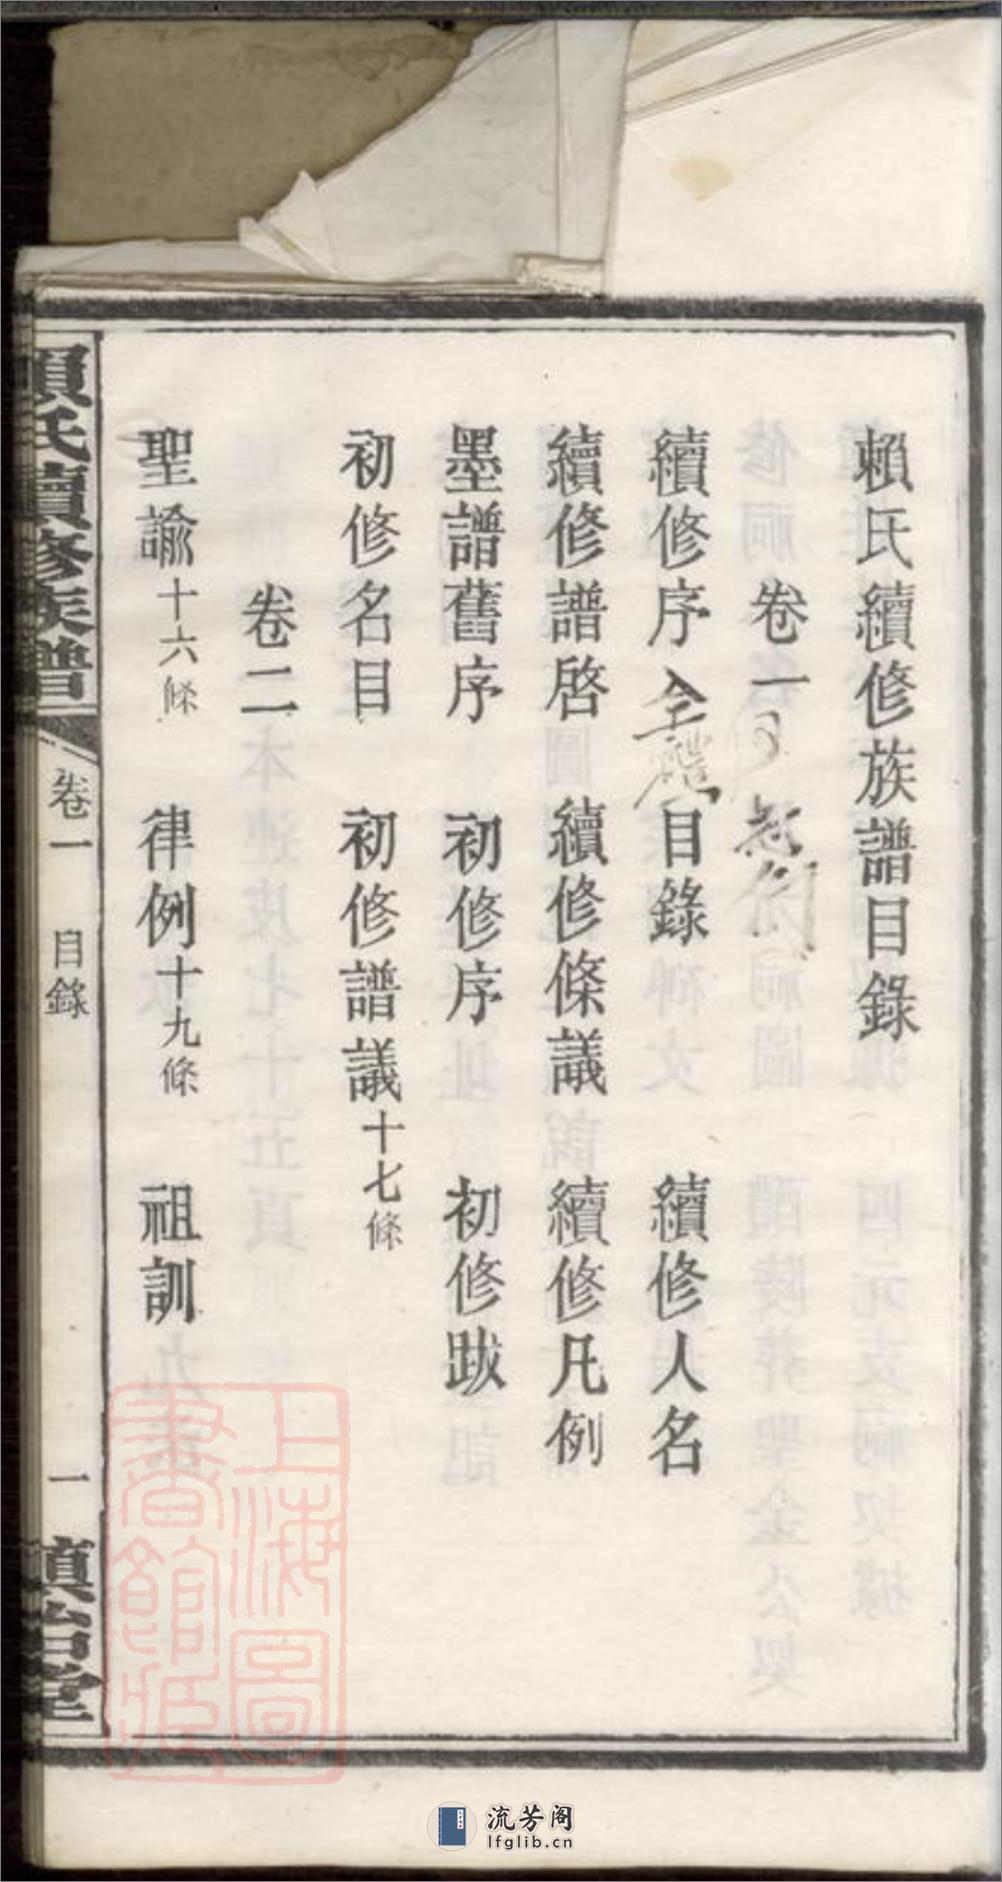 賴氏續修族譜目錄
卷一
續修序 目錄 續修人名
續修譜啓 續修條議 續修凡例
墨譜舊序 初修序 初修跋
初修名目 初修譜議十七條
卷二
聖諭十六條 律例十九條 祖訓
賴氏續修族譜
卷一 目錄
一
治堂
上海圖書館藏
流芳阁
lfglib.cn